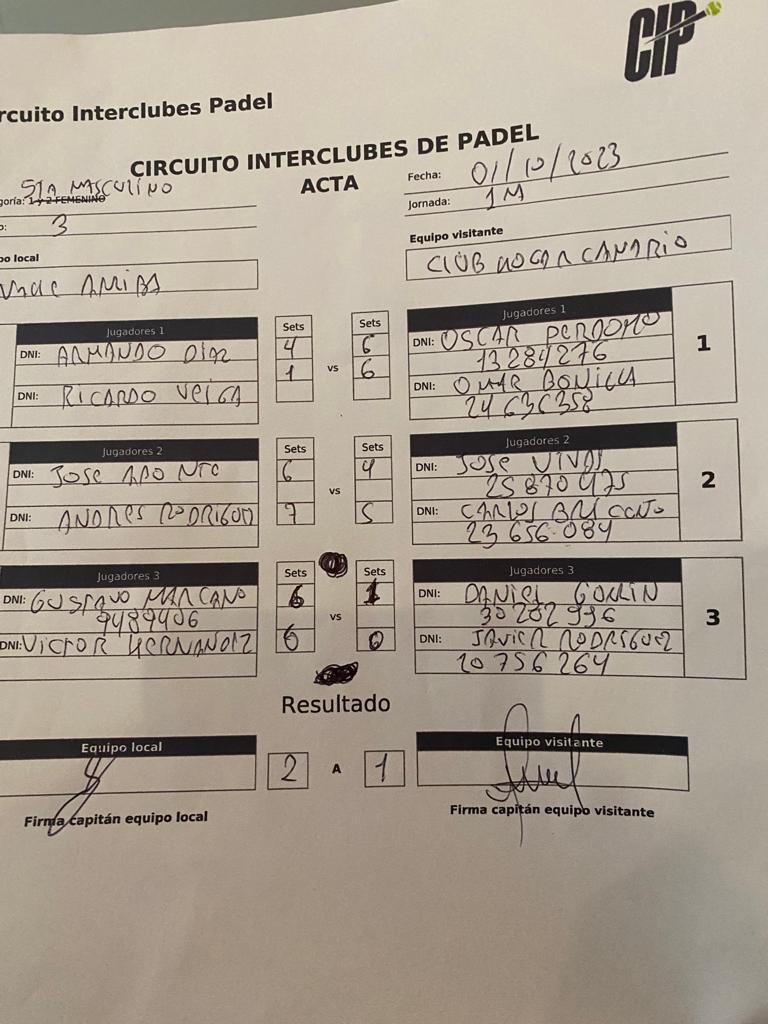 CIP
rcuito Interclubes Padel
CIRCUITO INTERCLUBES DE PADEL
ACTA
5TA MASCULINO
goría: 1 y 2 FEMENINO
Fecha: 01/10/2023
Jornada: 1M
o: 3
po local
Equipo visitante
AMIBA
CLUB HOGAR CANARIO
Jugadores 1
Sets
Sets
Jugadores 1
DNI: ARMANDO DIAZ
4
6
DNI: OSCAR PERDOMO
1
vs
6
13284276
1
DNI: RICARDO VEIGA
DNI: OMAR BONILLA
24636358
Jugadores 2
Sets
Sets
Jugadores 2
DNI: JOSE APONTE
6
4
DNI: JOSE VIVAS
vs
25870475
2
DNI: ANDRES RODRIGUEZ
7
5
DNI: CARLOS BRICEÑO
23656084
Jugadores 3
Sets
Sets
Jugadores 3
DNI: GUSTAVO MARCANO
6
1
DNI: DANIEL GORRIN
9489406
vs
30282996
3
DNI: VICTOR HERNANDEZ
6
0
DNI: JAVIER RODRIGUEZ
10756264
Resultado
Equipo local
2
A
1
Equipo visitante
Firma capitán equipo local
Firma capitán equipo visitante